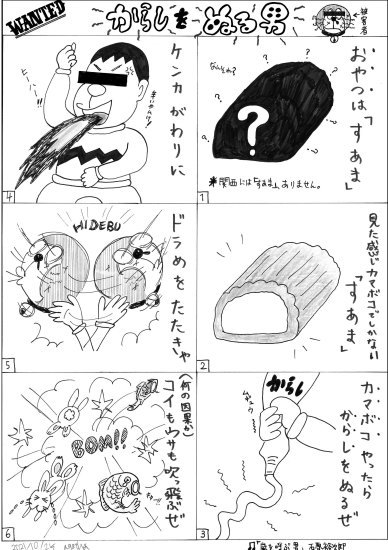 WANTED
からしをぬる男
被害者
おやつは「すあま」
なんそれ?
?
*関西には「すあま」ありません。
見た感じカマボコでしかない
「すあま」
カマボコやったら
からしをぬるぜ
からし
ケンカがわりに
ヒーハー!!
ドラめをたたきゃ
HIDEBU
(何の因果か)
コイもウサも吹っ飛ぶぜ
BOM!!
1
2
3
4
5
6
2021/10/24
♫「嵐を呼ぶ男」石原裕次郎